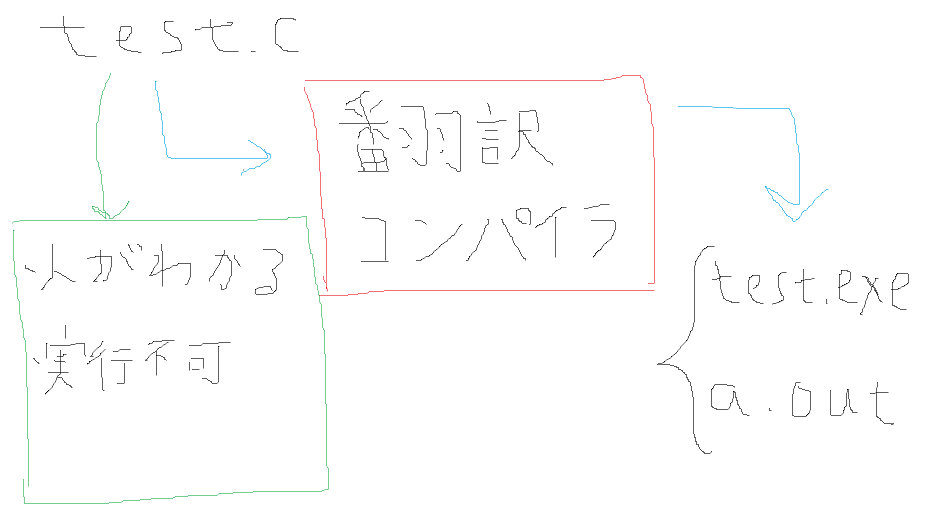 test.c
翻訳
コンパイラ
人がわかる
実行不可
test.exe
a.out